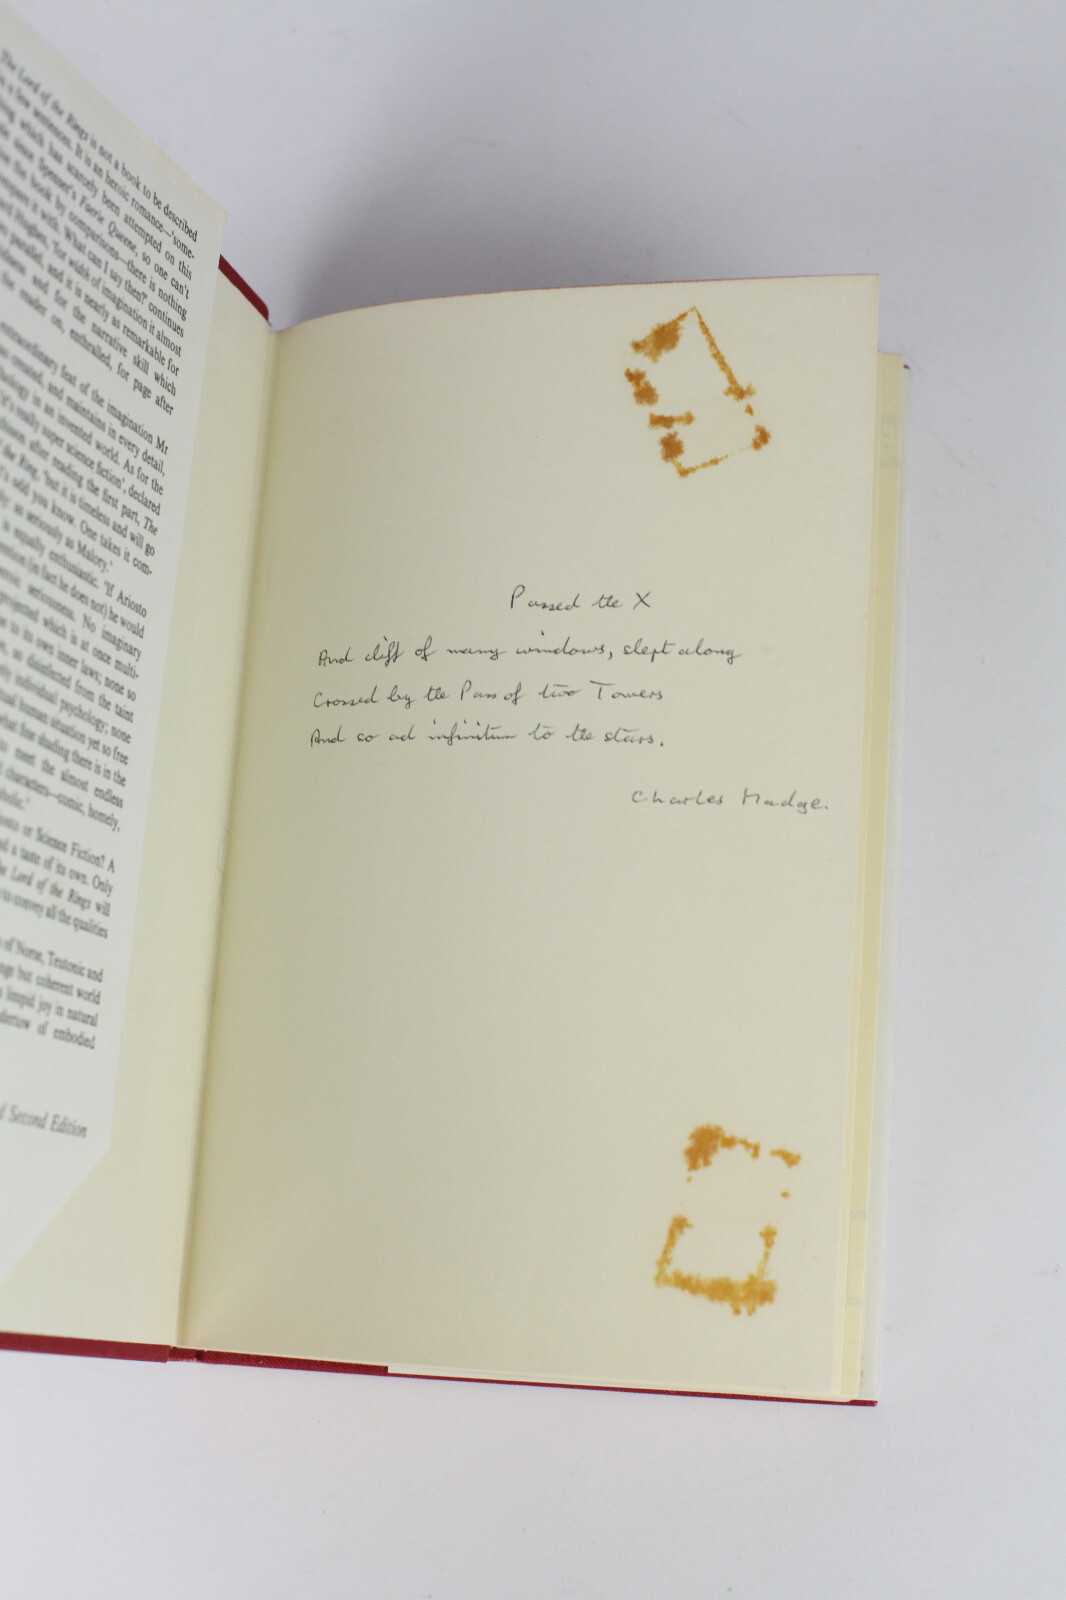 The Lord of the Rings is not a book to be described
in a few sentences. It is an heroic romance—'some-
thing which has scarcely been attempted on this
since Spenser's Faerie Queene, so one can't
the book by comparisons—there is nothing
compare it with. What can I say then?' continues
Hughes, 'for width of imagination it almost
parallel, and it is nearly as remarkable for
and for the narrative skill which
the reader on, enthralled, for page after
extraordinary feat of the imagination Mr
created, and maintains in every detail,
in an invented world. As for the
'it's really super science fiction', declared
after reading the first part, The
the Ring, 'but it is timeless and will go
It's odd you know. One takes it com-
as seriously as Malory.'
is equally enthusiastic. 'If Ariosto
invention (in fact he does not) he would
heroic seriousness. No imaginary
projected which is at once multi-
to its own inner laws; none so
so disinfected from the taint
individual psychology; none
actual human situation yet so free
what fine shading there is in the
to meet the almost endless
characters—comic, homely,
or Science Fiction? A
and a taste of its own. Only
The Lord of the Rings will
to convey all the qualities
of Norse, Teutonic and
but coherent world
limpid joy in natural
of embodied
Second Edition
Passed the X
And cliff of many windows, slept along
Crossed by the Pass of two Towers
And so ad infinitum to the stars.
Charles Madge.